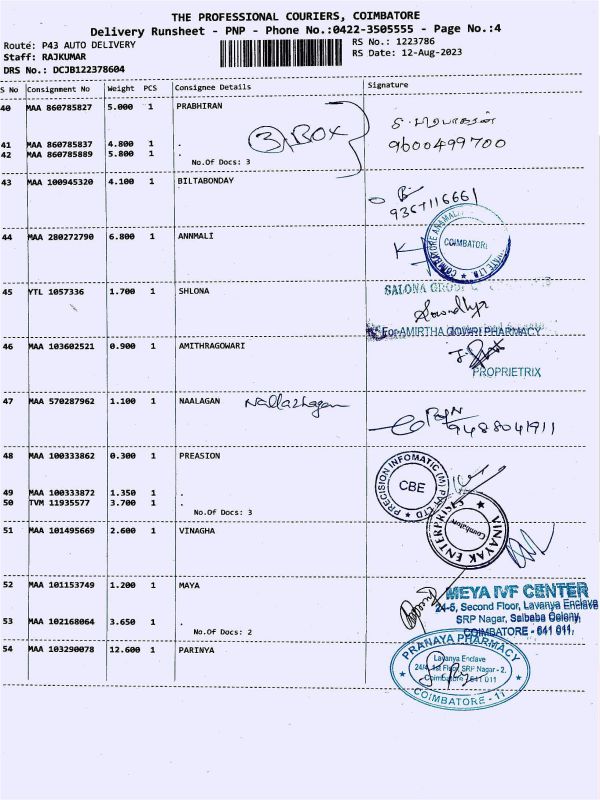 THE PROFESSIONAL COURIERS, COIMBATORE
Delivery Runsheet - PNP - Phone No.:0422-3505555 - Page No.:4
Route: P43 AUTO DELIVERY RS No.: 1223786
Staff: RAJKUMAR RS Date: 12-Aug-2023
DRS No.: DCJB122378604
S No Consignment No Weight PCS Consignee Details Signature
40 MAA 860785827 5.000 1 PRABHIRAN
3, BOX
9600499700
41 MAA 860785837 4.800 1 .
42 MAA 860785889 5.800 1 .
No.Of Docs: 3
43 MAA 100945320 4.100 1 BILTABONDAY
9367116661
44 MAA 280272790 6.800 1 ANNMALI
COIMBATORE
45 YTL 1057336 1.700 1 SHLONA
SALONA
Sowndhya
For AMIRTHA GOWRI PHARMACY
46 MAA 103602521 0.900 1 AMITHRAGOWARI
PROPRIETRIX
47 MAA 570287962 1.100 1 NAALAGAN Nallazhagan
9488041911
48 MAA 100333862 0.300 1 PREASION
PRECISION INFOMATIC (M) PVT LTD
CBE
49 MAA 100333872 1.350 1 .
50 TVM 11935577 3.700 1 .
No.Of Docs: 3
VINAYAK ENTERPRISES
Coimbatore
51 MAA 101495669 2.600 1 VINAGHA
52 MAA 101153749 1.200 1 MAYA
MEYA IVF CENTER
24-5, Second Floor, Lavanya Enclave
SRP Nagar, Saibaba Colony,
COIMBATORE - 641 011.
53 MAA 102168064 3.650 1 .
No.Of Docs: 2
54 MAA 103290078 12.600 1 PARINYA
PRANAYA PHARMACY
Lavanya Enclave
24/4, 1st Floor, SRP Nagar - 2,
Coimbatore - 641 011
COIMBATORE - 11